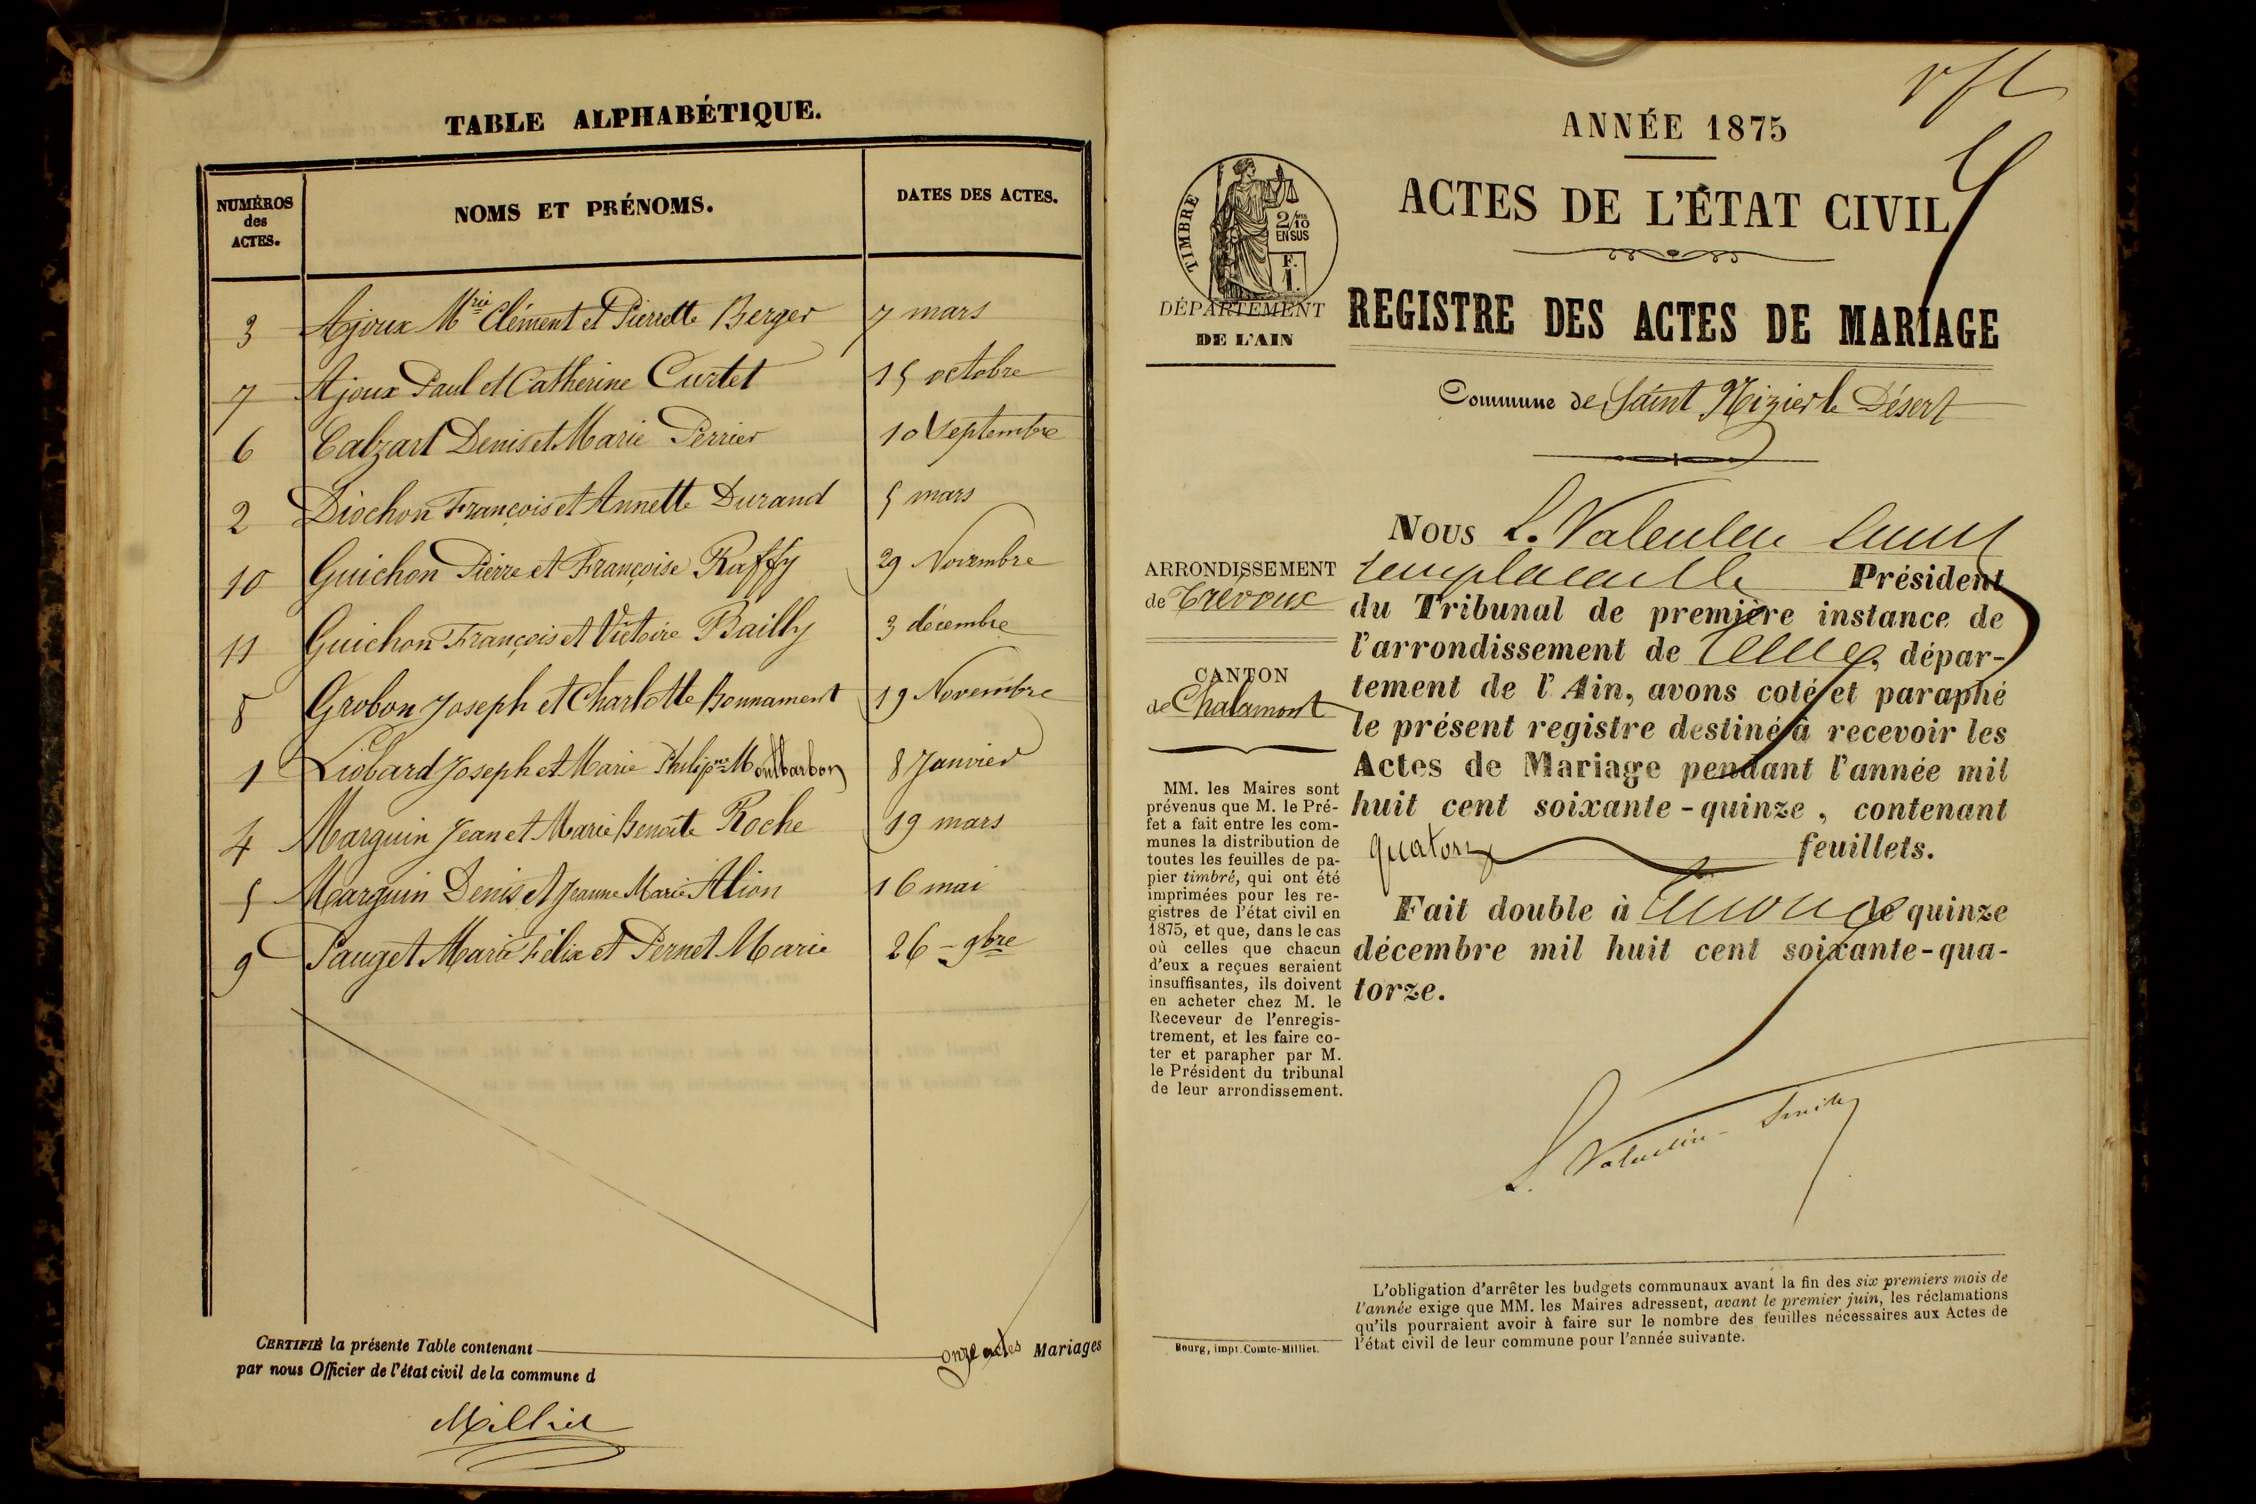 TABLE ALPHABÉTIQUE.
NUMÉROS des ACTES. NOMS ET PRÉNOMS. DATES DES ACTES.
3 Ajoux Mrie Clément et Pierrette Berger 7 mars
7 Ajoux Paul et Catherine Curtet 15 octobre
6 Calzart Denis et Marie Perrier 10 Septembre
2 Diochon François et Annette Durand 5 mars
10 Guichon Pierre et Françoise Raffy 29 Novembre
11 Guichon François et Victoire Bailly 3 décembre
8 Grobon Joseph et Charlotte Bonnament 19 Novembre
1 Liobard Joseph et Marie Philipne Montbarbon 8 Janvier
4 Marguin Jean et Marie Benoite Roche 19 mars
5 Marguin Denis et Jeanne Marie Alion 16 mai
9 Pauget Marie Félix et Pernet Marie 26 - 9bre
CERTIFIÉ la présente Table contenant onze actes Mariages
par nous Officier de l'état civil de la commune d
Milliet
ANNÉE 1875
ACTES DE L'ÉTAT CIVIL
TIMBRE
2/10 EN SUS
F. 1.
DÉPARTEMENT
DE L'AIN
REGISTRE DES ACTES DE MARIAGE
Commune de Saint Nizier le Désert
ARRONDISSEMENT
de Trévoux
CANTON
de Chalamont
MM. les Maires sont
prévenus que M. le Pré-
fet a fait entre les com-
munes la distribution de
toutes les feuilles de pa-
pier timbré, qui ont été
imprimées pour les re-
gistres de l'état civil en
1875, et que, dans le cas
où celles que chacun
d'eux a reçues seraient
insuffisantes, ils doivent
en acheter chez M. le
Receveur de l'enregis-
trement, et les faire co-
ter et parapher par M.
le Président du tribunal
de leur arrondissement.
Bourg, impr. Comte-Milliet.
Nous L. Valentin Smith
Président
du Tribunal de première instance de
l'arrondissement de dépar-
tement de l'Ain, avons coté et paraphé
le présent registre destiné à recevoir les
Actes de Mariage pendant l'année mil
huit cent soixante-quinze, contenant
quatorze feuillets.
Fait double à Trévoux le quinze
décembre mil huit cent soixante-qua-
torze.
L. Valentin-Smith
L'obligation d'arrêter les budgets communaux avant la fin des six premiers mois de
l'année exige que MM. les Maires adressent, avant le premier juin, les réclamations
qu'ils pourraient avoir à faire sur le nombre des feuilles nécessaires aux Actes de
l'état civil de leur commune pour l'année suivante.